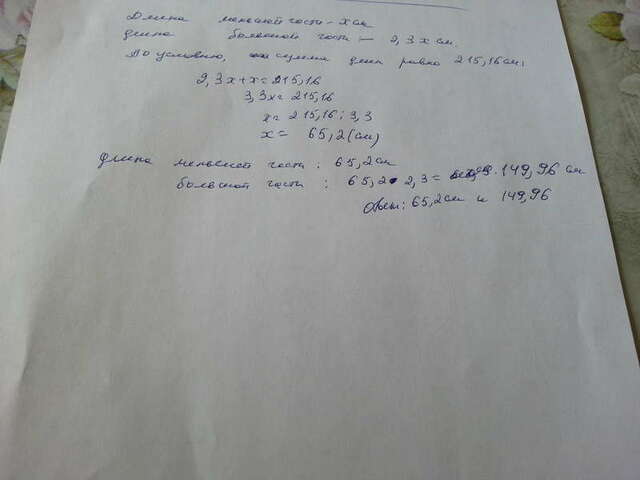 Длина меньшей части - х см
длина большей части - 2,3 х см.
По условию, сумма длин равна 215,16 см;
2,3х+х=215,16
3,3х=215,16
х=215,16:3,3
х= 65,2(см)
Длина меньшей части: 65,2см
большей части: 65,2 • 2,3 = 149,96 см
Ответ: 65,2см и 149,96